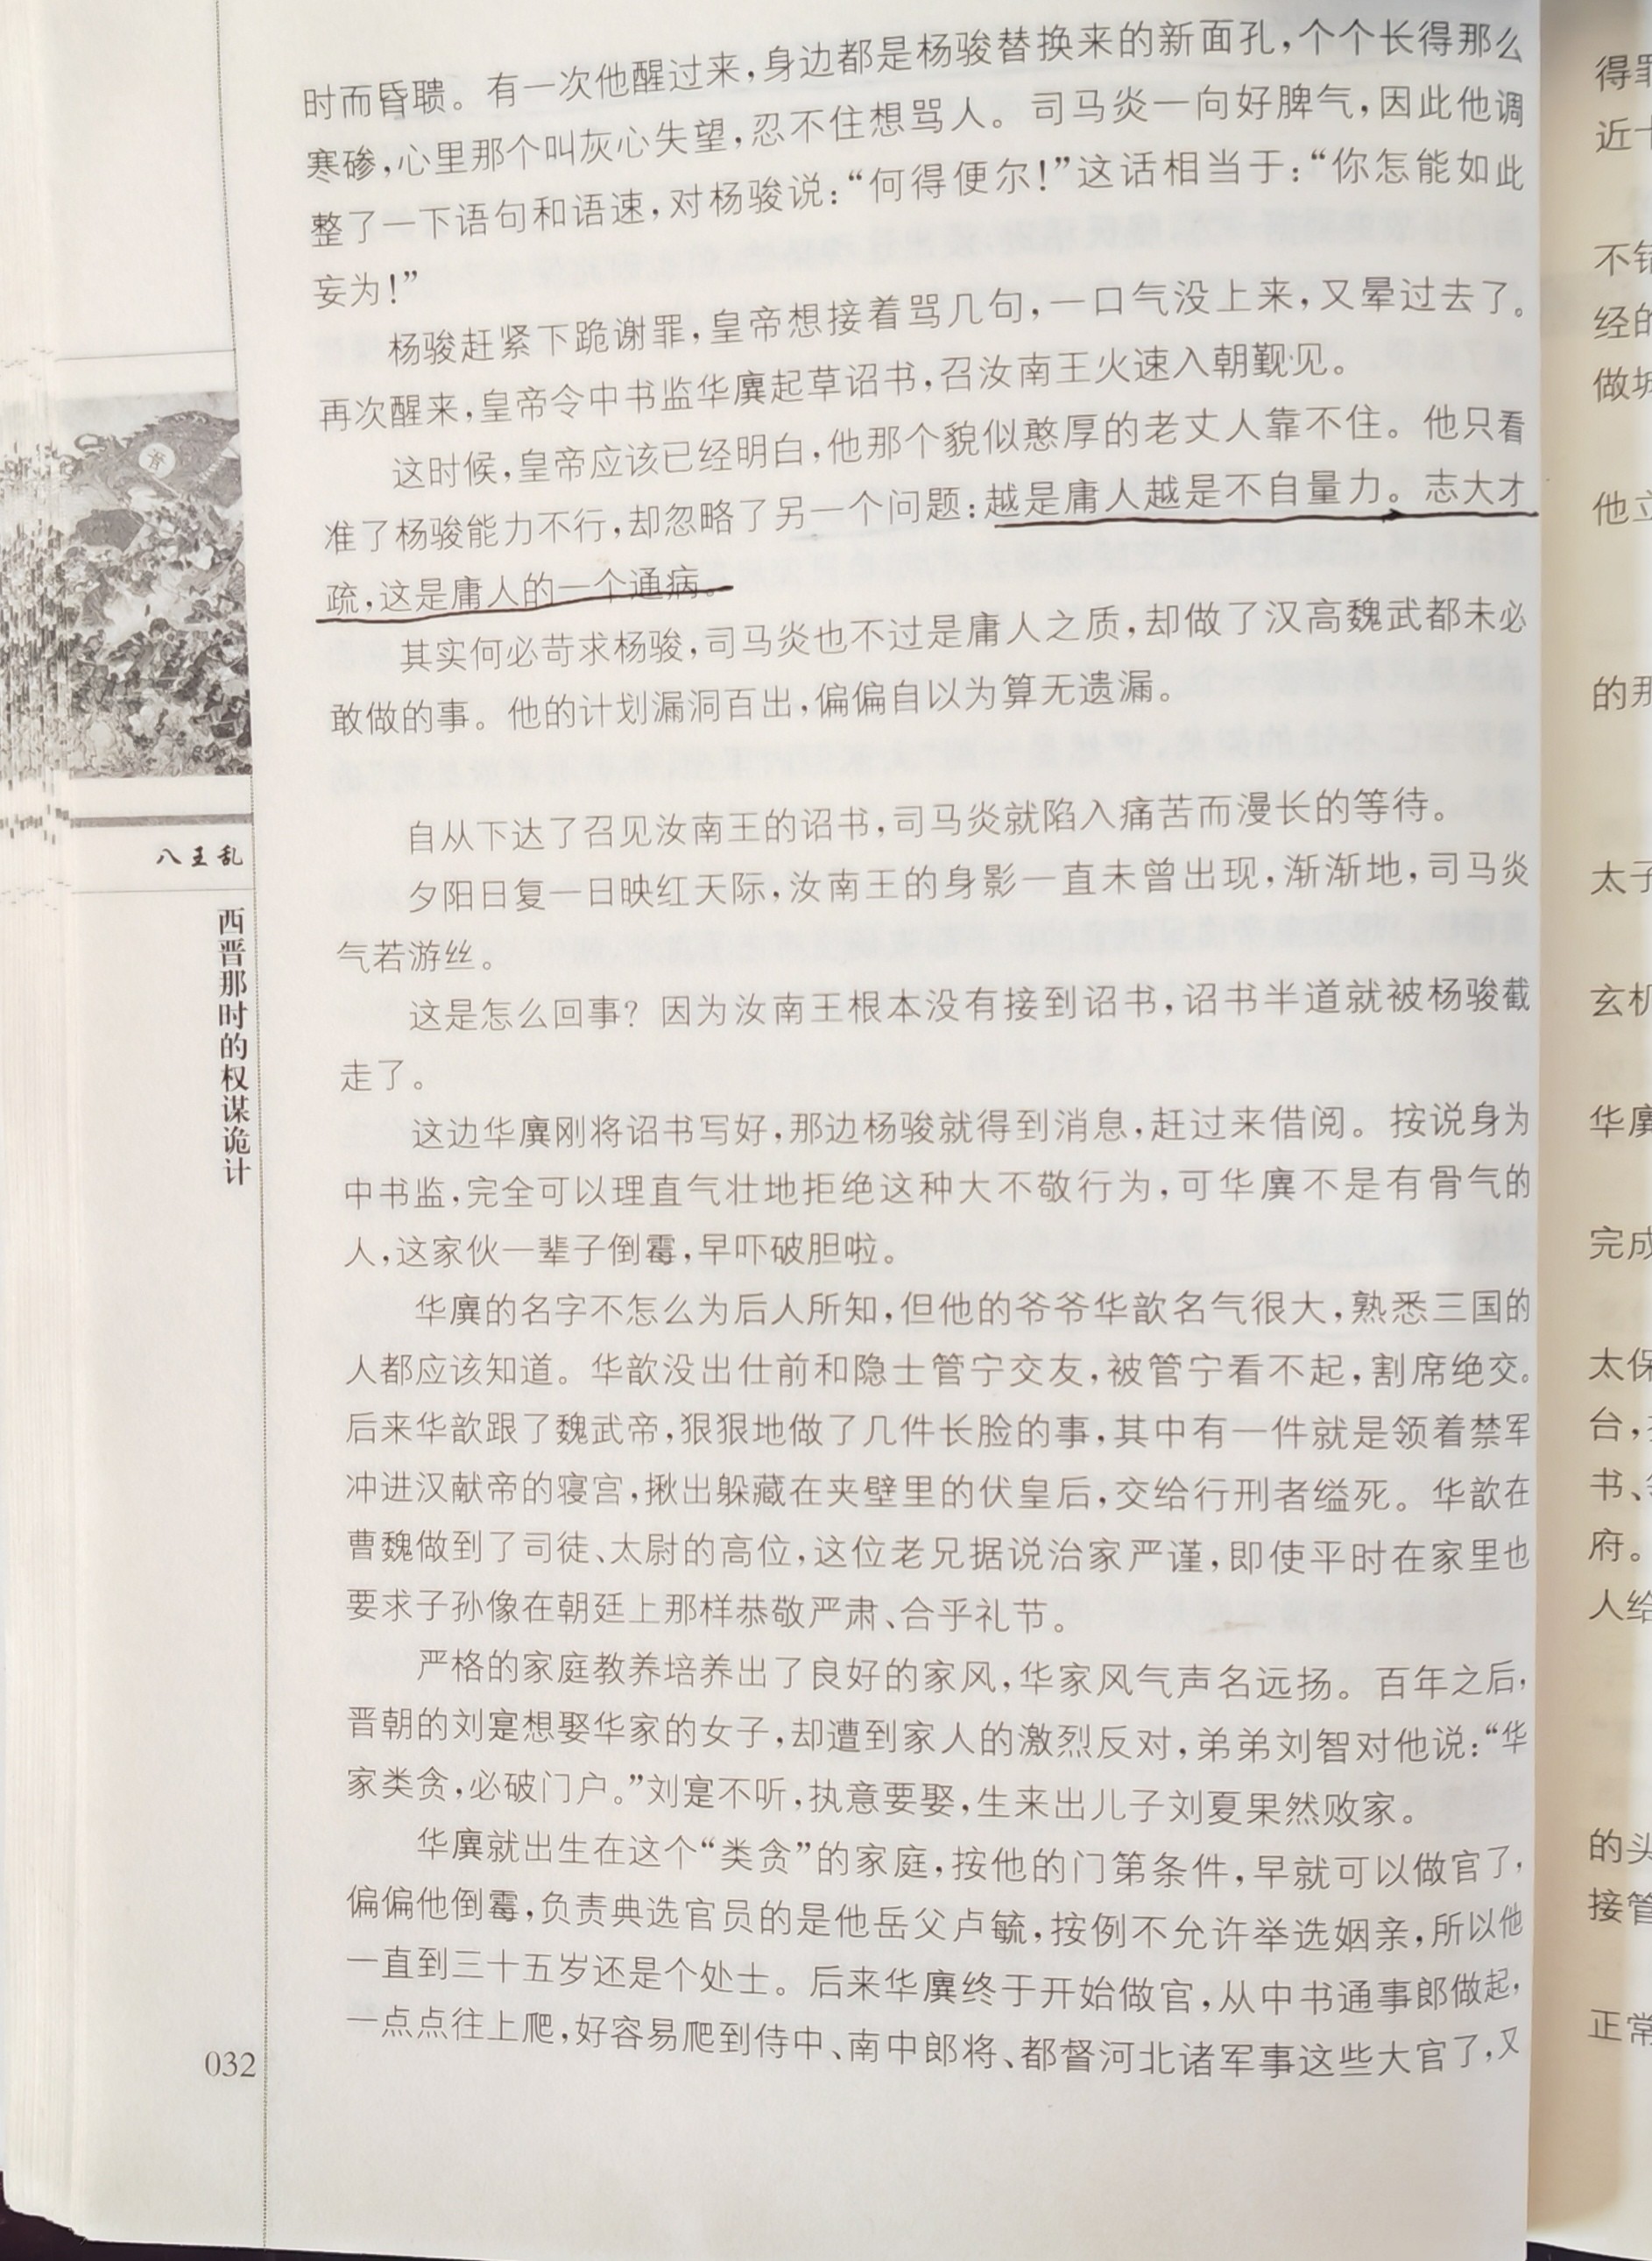 时而昏聩。有一次他醒过来，身边都是杨骏替换来的新面孔，个个长得那么
寒碜，心里那个叫灰心失望，忍不住想骂人。司马炎一向好脾气，因此他调
整了一下语句和语速，对杨骏说：“何得便尔！”这话相当于：“你怎能如此
妄为！”
杨骏赶紧下跪谢罪，皇帝想接着骂几句，一口气没上来，又晕过去了。
再次醒来，皇帝令中书监华廙起草诏书，召汝南王火速入朝觐见。
这时候，皇帝应该已经明白，他那个貌似憨厚的老丈人靠不住。他只看
准了杨骏能力不行，却忽略了另一个问题：越是庸人越是不自量力。志大才
疏，这是庸人的一个通病。
其实何必苛求杨骏，司马炎也不过是庸人之质，却做了汉高魏武都未必
敢做的事。他的计划漏洞百出，偏偏自以为算无遗漏。
自从下达了召见汝南王的诏书，司马炎就陷入痛苦而漫长的等待。
夕阳日复一日映红天际，汝南王的身影一直未曾出现，渐渐地，司马炎
气若游丝。
这是怎么回事？因为汝南王根本没有接到诏书，诏书半道就被杨骏截
走了。
这边华廙刚将诏书写好，那边杨骏就得到消息，赶过来借阅。按说身为
中书监，完全可以理直气壮地拒绝这种大不敬行为，可华廙不是有骨气的
人，这家伙一辈子倒霉，早吓破胆啦。
华廙的名字不怎么为后人所知，但他的爷爷华歆名气很大，熟悉三国的
人都应该知道。华歆没出仕前和隐士管宁交友，被管宁看不起，割席绝交。
后来华歆跟了魏武帝，狠狠地做了几件长脸的事，其中有一件就是领着禁军
冲进汉献帝的寝宫，揪出躲藏在夹壁里的伏皇后，交给行刑者缢死。华歆在
曹魏做到了司徒、太尉的高位，这位老兄据说治家严谨，即使平时在家里也
要求子孙像在朝廷上那样恭敬严肃、合乎礼节。
严格的家庭教养培养出了良好的家风，华家风气声名远扬。百年之后，
晋朝的刘寔想娶华家的女子，却遭到家人的激烈反对，弟弟刘智对他说：“华
家类贪，必破门户。”刘寔不听，执意要娶，生来出儿子刘夏果然败家。
华廙就出生在这个“类贪”的家庭，按他的门第条件，早就可以做官了，
偏偏他倒霉，负责典选官员的是他岳父卢毓，按例不允许举选姻亲，所以他
一直到三十五岁还是个处士。后来华廙终于开始做官，从中书通事郎做起，
一点点往上爬，好容易爬到侍中、南中郎将、都督河北诸军事这些大官了，又
八王乱
西晋那时的权谋诡计
032
近
不
经的
他立
太子
玄机
华廙
完成
太保
台，
书、
府。
人给
的头
接管
正常